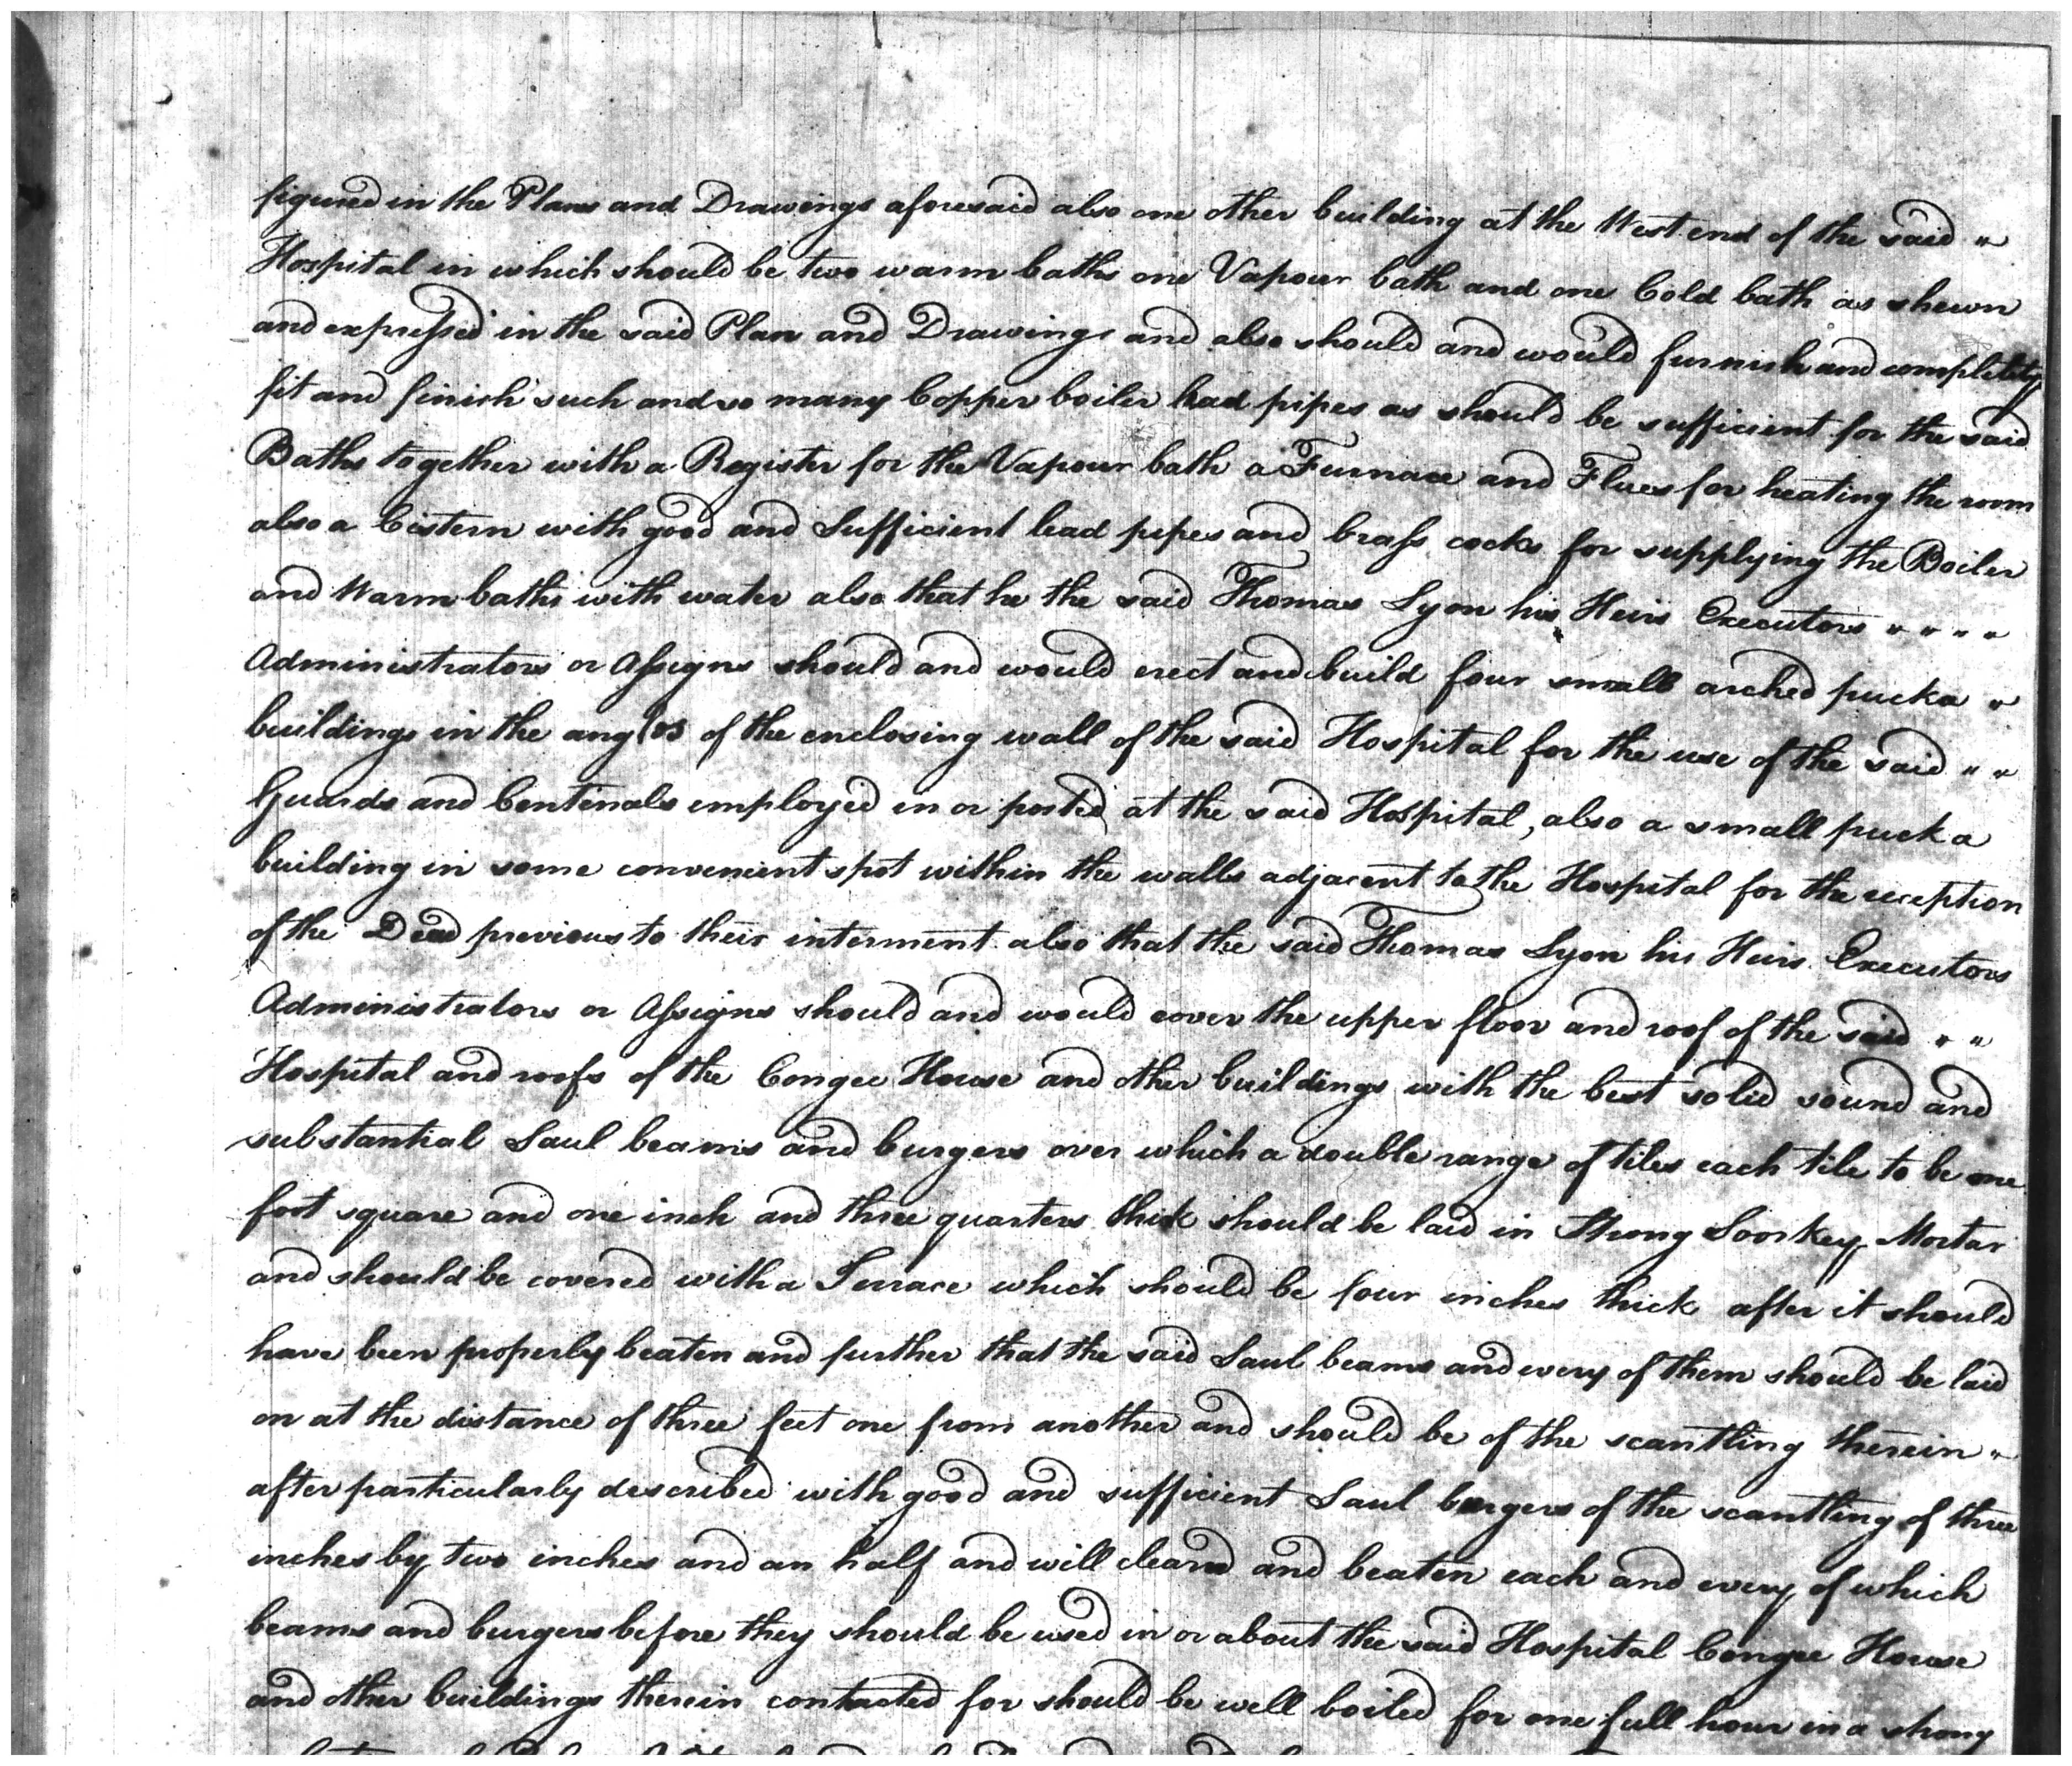 figured in the Plans and Drawings aforesaid also one other building at the West end of the said "
Hospital in which should be two warm baths one Vapour bath and one Cold bath as shewn
and expressed in the said Plan and Drawings and also should and would furnish and completely
fit and finish such and so many Copper boiler lead pipes as should be sufficient for the said
Baths together with a Register for the Vapour bath a Furnace and Flues for heating the room
also a Cistern with good and Sufficient lead pipes and brass cocks for supplying the Boiler
and Warm baths with water also that he the said Thomas Lyon his Heirs Executors " " " "
Administrators or Assigns should and would erect and build four small arched pucka "
buildings in the angles of the enclosing wall of the said Hospital for the use of the said " "
Guards and Centinals employed in or posted at the said Hospital, also a small pucka
building in some convenient spot within the walls adjacent to the Hospital for the reception
of the Dead previous to their interment also that the said Thomas Lyon his Heirs Executors
Administrators or Assigns should and would cover the upper floor and roof of the said " "
Hospital and roofs of the Congee House and other buildings with the best solid sound and
substantial Saul beams and burgers over which a double range of tiles each tile to be one
foot square and one inch and three quarters thick should be laid in Strong Soorkey Mortar
and should be covered with a Terrace which should be four inches thick after it should
have been properly beaten and further that the said Saul beams and every of them should be laid
on at the distance of three feet one from another and should be of the scantling therein "
after particularly described with good and sufficient Saul burgers of the scantling of three
inches by two inches and an half and will cleand and beaten each and every of which
beams and burgers before they should be used in or about the said Hospital Congee House
and other buildings therein contracted for should be well boiled for one full hour in a strong